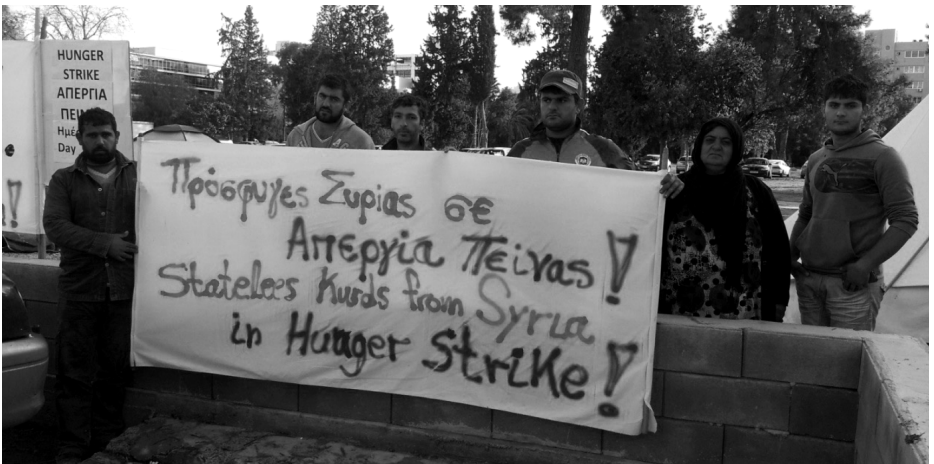 HUNGER
STRIKE
ΑΠΕΡΓΙΑ
Day
Πρόσφυγες Συρίας σε
Απεργία Πείνας!
Statelees Kurds from Syria
in Hunger Strike!